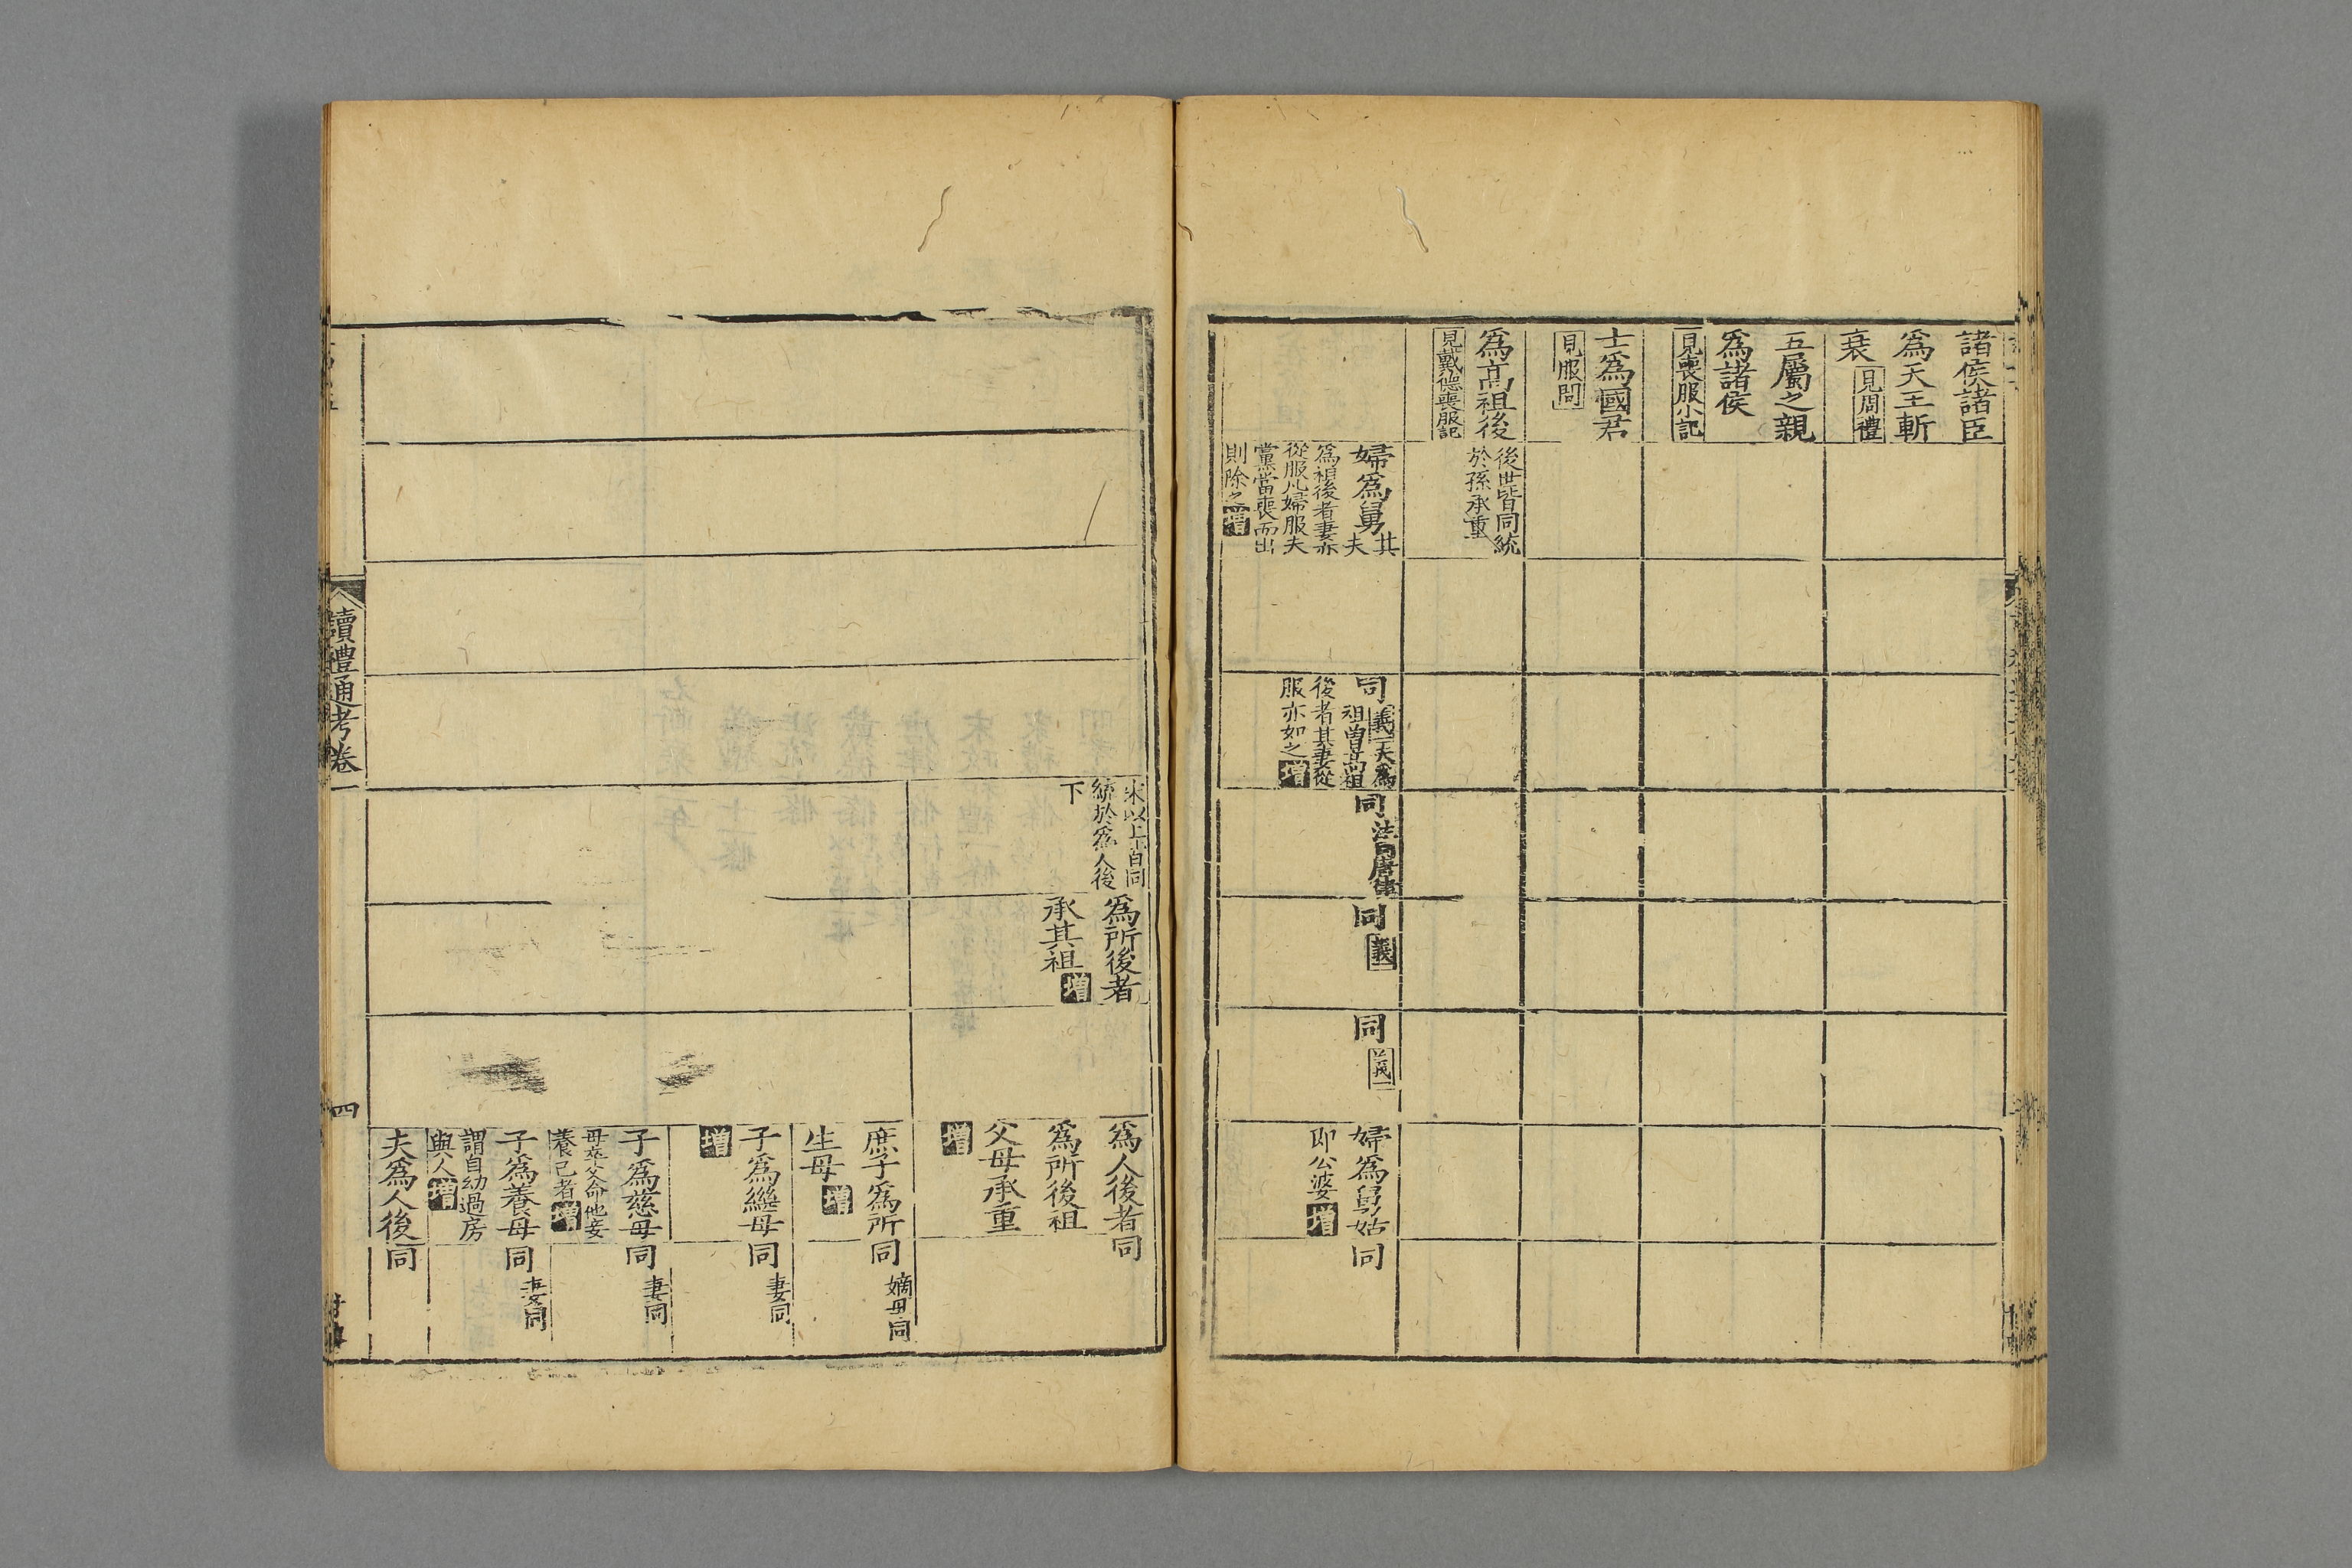 諸侯諸臣
爲天王斬
衰見周禮
五屬之親
爲諸侯
見喪服小記
士爲國君
見服問
爲高祖後
見戴德喪服記
後世皆同統
於孫承重
婦爲舅其
夫
爲祖後者妻亦
從服凡婦服夫
黨當喪而出
則除之增
同義一夫爲
祖曾高祖
後者其妻從
服亦如之增
同
同義一
同義一
婦爲舅姑
即公婆增
同
宋以上皆同
統於爲人後
下
爲所後者
承其祖增
爲人後者
爲所後祖
父母承重
增
同
庶子爲所
生母增
同嫡母同
子爲繼母
增
同妻同
子爲慈母
母卒父命他妾
養己者增
同妻同
子爲養母
謂自幼過房
與人增
同妻同
夫爲人後
同
讀禮通考卷一
四